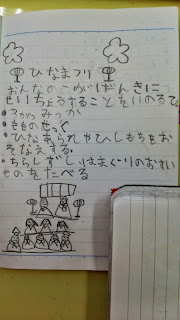 ひなまつり
おんなのこがげんきに
せいちょうすることをいのるひ。
3がつみっか
もものせっく
ひなあられやひしもちをお
そなえする。
ちらしずしやはまぐりのおすい
ものをたべる